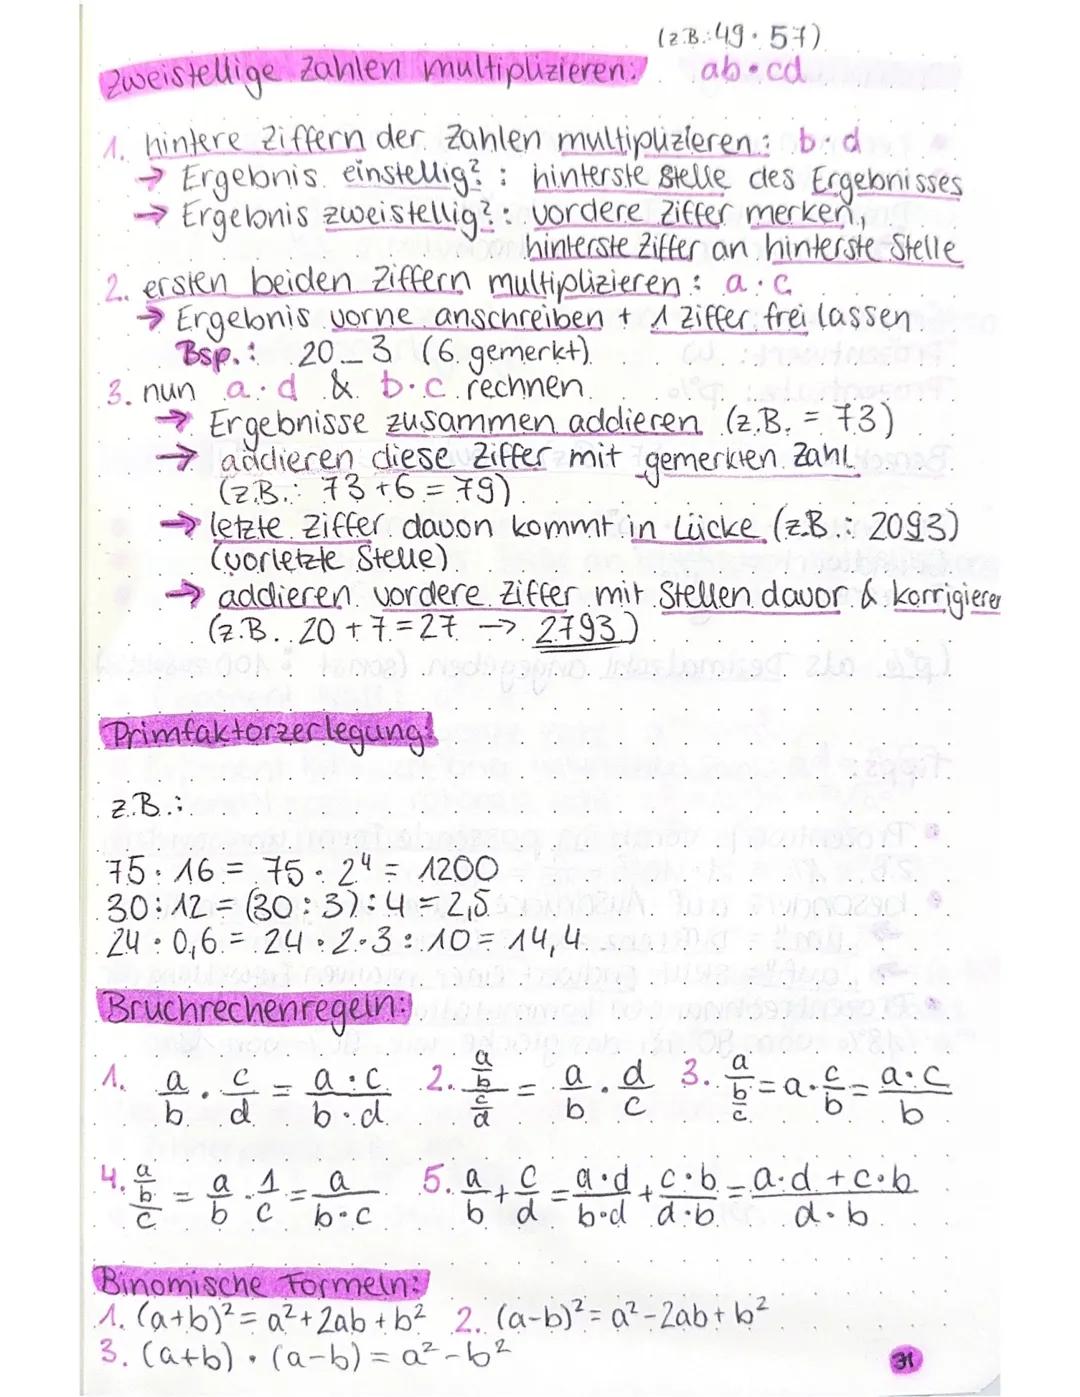 (z.B.: 49 · 57)
Zweistellige Zahlen multiplizieren: ab · cd
1. hintere Ziffern der Zahlen multiplizieren: b · d
→ Ergebnis einstellig? : hinterste Stelle des Ergebnisses
→ Ergebnis zweistellig? : vordere Ziffer merken,
hinterste Ziffer an hinterste Stelle
2. ersten beiden Ziffern multiplizieren : a · c
→ Ergebnis vorne anschreiben + 1 Ziffer frei lassen
Bsp.: 20_3 (6 gemerkt)
3. nun a · d & b · c rechnen
→ Ergebnisse zusammen addieren (z.B. = 73)
→ addieren diese Ziffer mit gemerkten Zahl
(z.B.: 73 + 6 = 79)
→ letzte Ziffer davon kommt in Lücke (z.B.: 2093)
(vorletzte Stelle)
→ addieren vordere Ziffer mit Stellen davor & korrigieren
(z.B. 20 + 7 = 27 → 2793)
Primfaktorzerlegung:
z.B.:
75 · 16 = 75 · 2⁴ = 1200
30 : 12 = (30 : 3) : 4 = 2,5
24 · 0,6 = 24 · 2 · 3 : 10 = 14,4
Bruchrechenregeln:
1. a/b · c/d = a · c / b · d 2. (a/b)/(c/d) = a/b · d/c 3. a/(b/c) = a · c/b = a · c / b
4. (a/b)/c = a/b · 1/c = a / b · c 5. a/b + c/d = a · d / b · d + c · b / d · b = a · d + c · b / d · b
Binomische Formeln:
1. (a+b)² = a² + 2ab + b² 2. (a-b)² = a² - 2ab + b²
3. (a+b) · (a-b) = a² - b²
31